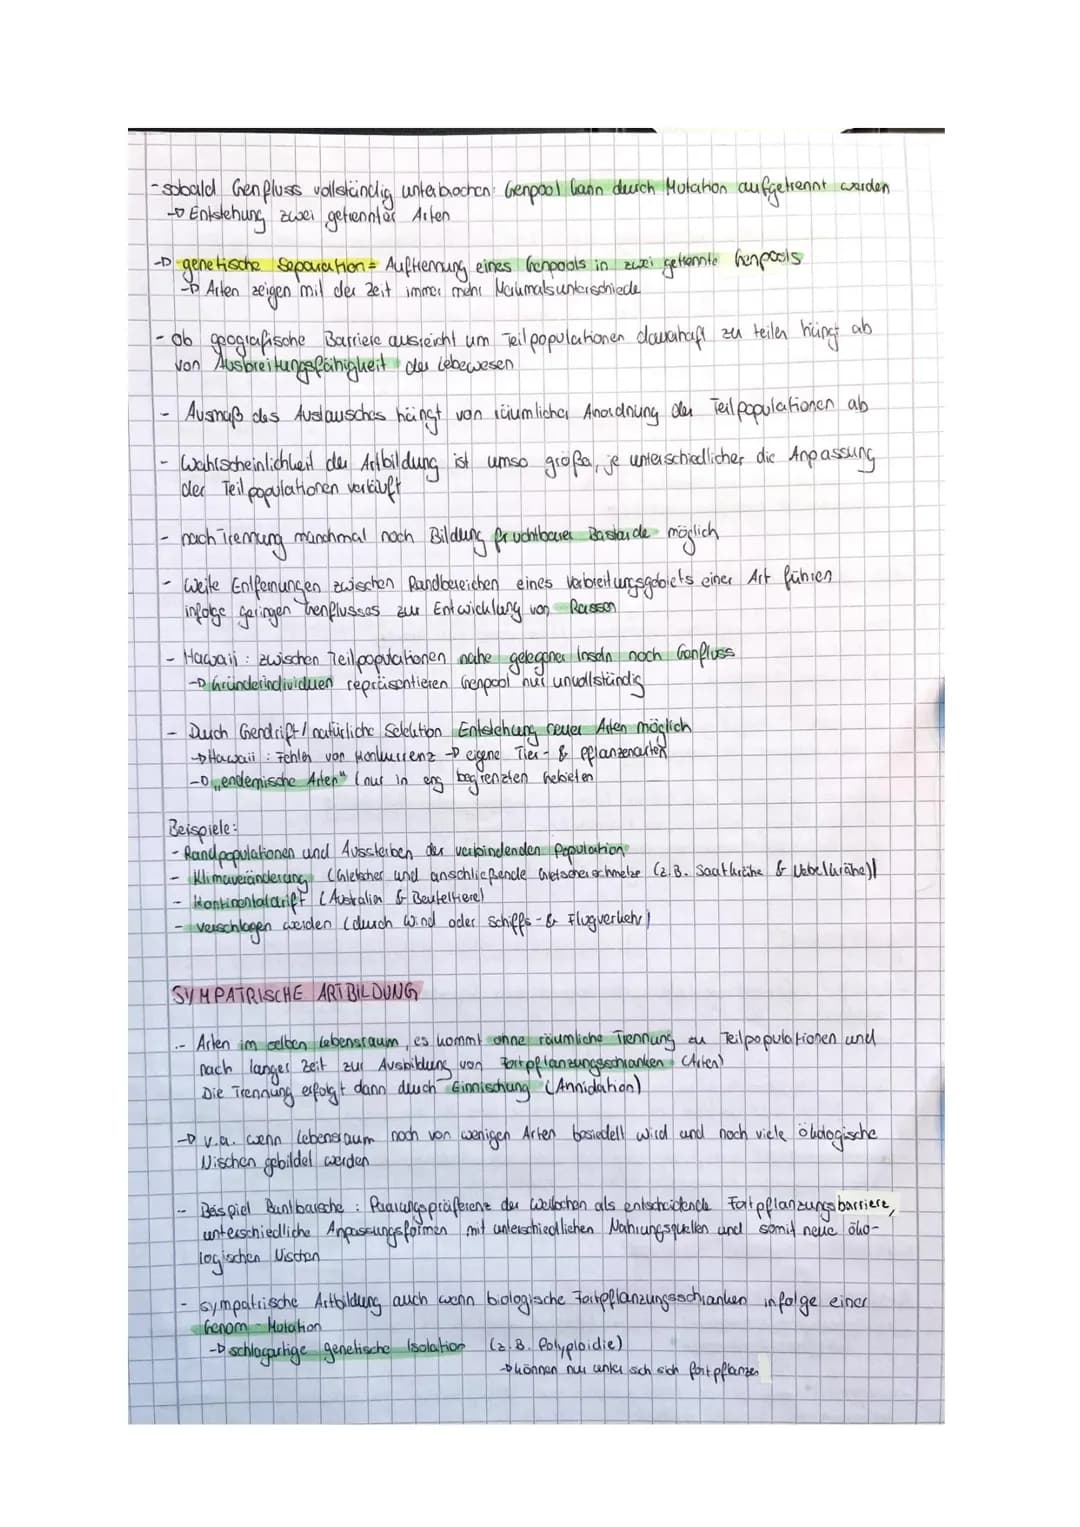 - sobald Genfluss vollständig unterbrochen: Genpool kann durch Mutation aufgetrennt werden
→ Entstehung zwei getrennter Arten
→ genetische Separation = Auftrennung eines Genpools in zwei getrennte Genpools
→ Arten zeigen mit der Zeit immer mehr Merkmalsunterschiede
- ob geografische Barriere ausreicht um Teilpopulationen dauerhaft zu teilen hängt ab
von Ausbreitungsfähigkeit der Lebewesen
- Ausmaß des Austausches hängt von räumlicher Anordnung der Teilpopulationen ab
- Wahrscheinlichkeit der Artbildung ist umso größer, je unterschiedlicher die Anpassung
der Teilpopulationen verläuft
- nach Trennung manchmal noch Bildung fruchtbarer Bastarde möglich
- Weite Entfernungen zwischen Randbereichen eines Verbreitungsgebiets einer Art führen
infolge geringen Genflusses zur Entwicklung von Rassen
- Hawaii : zwischen Teilpopulationen nahe gelegener Inseln noch Genfluss
→ Gründerindividuen repräsentieren Genpool nur unvollständig
- Duch Gendrift / natürliche Selektion Entstehung neuer Arten möglich
→ Hawaii : Fehlen von Konkurrenz → eigene Tier- & Pflanzenarten
→ „endemische Arten" (nur in eng begrenzten Gebieten
Beispiele:
- Randpopulationen und Aussterben der verbindenden Population
- Klimaveränderung (Gletscher und anschließende Gletscherschmelze (z.B. Saatkrähe & Nebelkrähe))
- Kontinentaldrift (Australien & Beuteltiere)
- verschlagen werden (durch Wind oder Schiffs- & Flugverkehr)
SYMPATRISCHE ARTBILDUNG
- Arten im selben Lebensraum, es kommt ohne räumliche Trennung zu Teilpopulationen und
nach langer Zeit zur Ausbildung von Fortpflanzungsschranken (Arten)
Die Trennung erfolgt dann durch Einnischung (Annidation)
→ v.a. wenn Lebensraum noch von wenigen Arten besiedelt wird und noch viele ökologische
Nischen gebildet werden
- Beispiel Buntbarsche : Paarungspräferenz der Weibchen als entscheidende Fortpflanzungsbarriere,
unterschiedliche Anpassungsformen mit unterschiedlichen Nahrungsquellen und somit neue öko-
logischen Nischen
- sympatrische Artbildung auch wenn biologische Fortpflanzungsschranken infolge einer
Genom - Mutation
→ schlagartige genetische Isolation (z.B. Polyploidie)
→ können nur unter sich sich fortpflanzen